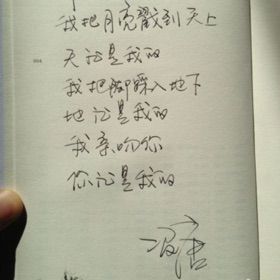 我把月亮戳到天上
天就是我的
我把脚踩入地下
地就是我的
我亲吻你
你就是我的
冯唐